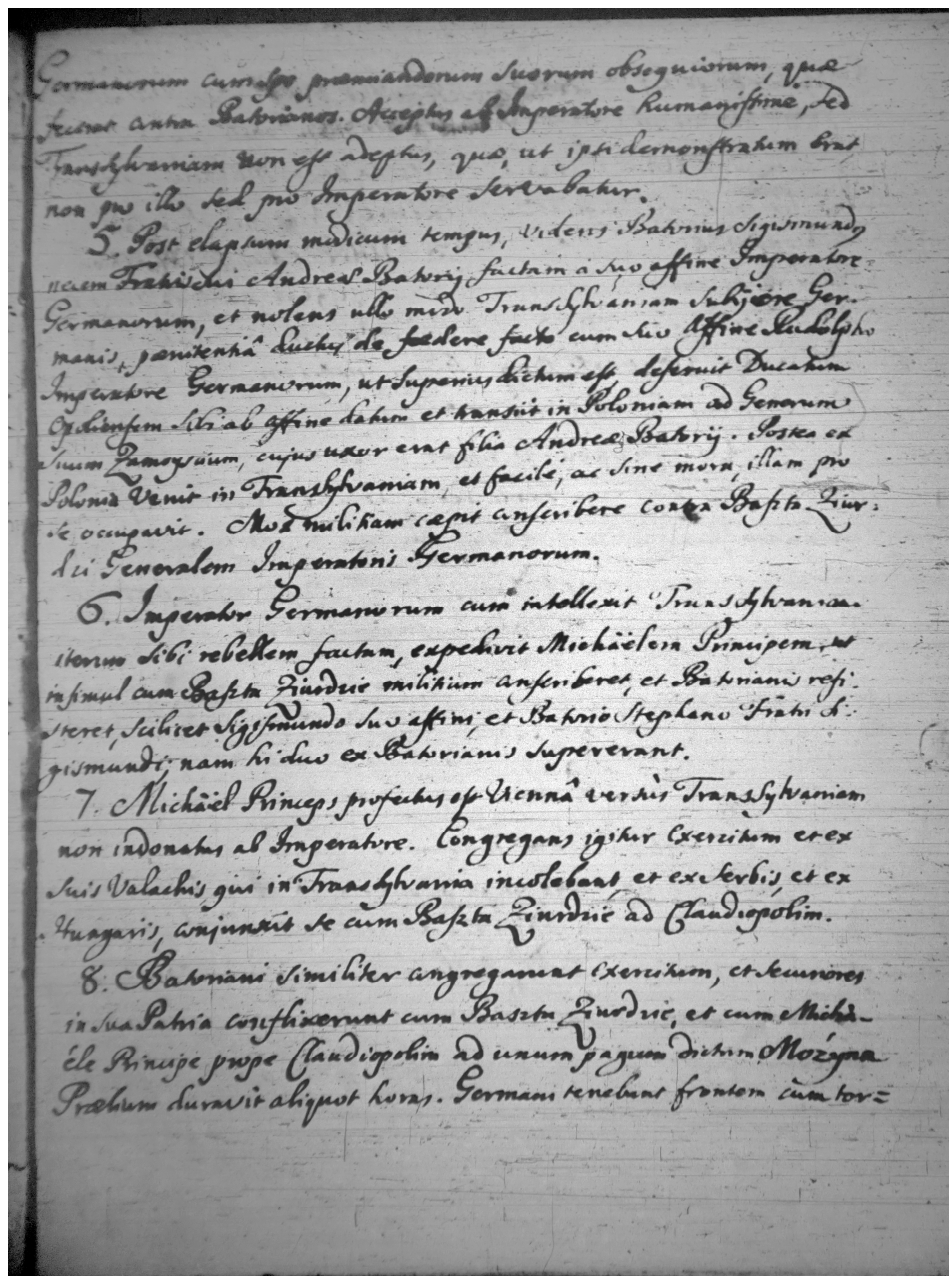 Germanorum cum spe præmiandorum suorum obsequiorum, quæ
fecerat contra Batorianos. Acceptus ab Imperatore humanissimè, sed
Transylvaniam non est adeptus, quæ, ut ipsi demonstratum erat
non pro illo sed pro Imperatore servabatur.
5. Post elapsum modicum tempus, videns Batorius Sigismundus
necem Andreæ Batorij factam à suo affine Imperatore
Germanorum, et nolens ullo modo Transylvaniam subijcere Ger-
manis, pænitentiâ ductus de fædere facto cum suo affine Rudolpho
Imperatore Germanorum, ut superius dictum est deseruit Ducatum
Opoliensem sibi ab affine datum et transiit in Poloniam ad Generum
suum Zamoyscium, cujus uxor erat filia Andreæ Batorij. Postea ex
Polonia venit in Transylvaniam, et facilè, ac sine mora, illam pro
se occupavit. Mox militiam cæpit conscribere contra Baszta Ziur=
dzi Generalem Imperatoris Germanorum.
6. Imperator Germanorum cum intellexit Transylvaniam
iterum sibi rebellem factam, expedivit Michäelem Principem, ut
insimul cum Baszta Ziurdzie militiam conscriberet, et Batorianis resi-
steret, scilicet Sigismundo suo affini, et Batorio Stephano Fratri Si-
gismundi; nam hi duo ex Batorianis supererant.
7. Michäel Princeps profectus est Viennâ versùs Transylvaniam
non indonatus ab Imperatore. Congregans igitur Exercitum et ex
suis Valachis, qui in Transylvania incolebant, et ex Serbis, et ex
Hungaris, conjunxit se cum Baszta Ziurdzie ad Claudiopolim.
8. Batoriani similiter congregarunt exercitum, et securiores
in sua Patria conflixerunt cum Baszta Ziurdzie, et cum Michä-
ële Principe prope Claudiopolim ad unum pagum dictum Możyna
Prælium duravit aliquot horas. Germani tenebant frontem cùm tor=